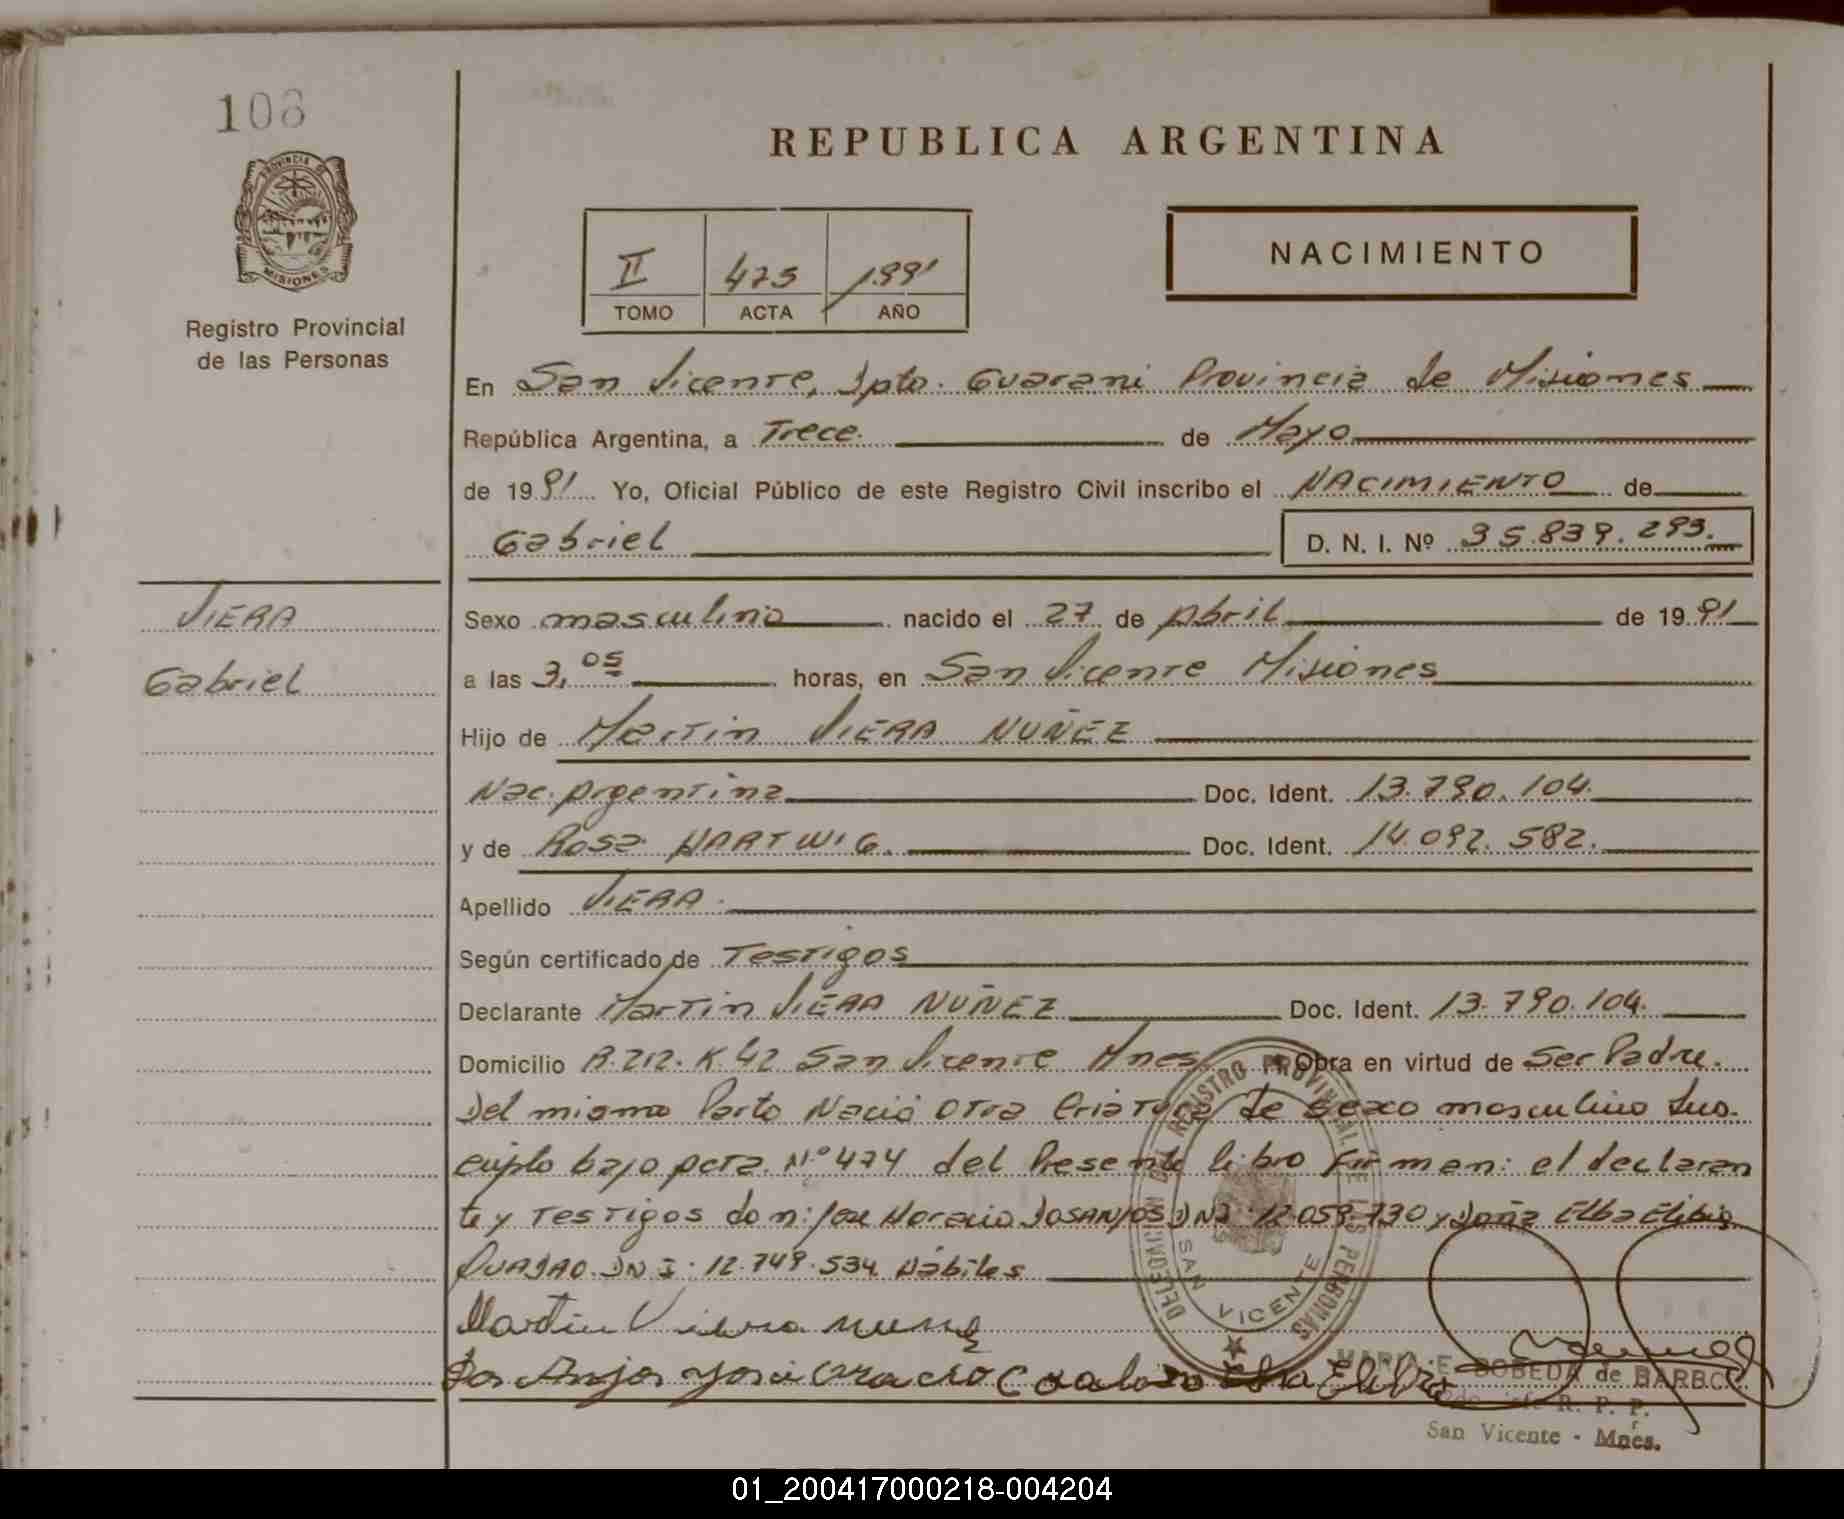 108
REPUBLICA ARGENTINA
PROVINCIA DE
MISIONES
Registro Provincial
de las Personas
NACIMIENTO
II 475 1991
TOMO ACTA AÑO
En San Vicente, Dpto. Guarani Provincia de Misiones
República Argentina, a Trece. de Mayo
de 1991 Yo, Oficial Público de este Registro Civil inscribo el NACIMIENTO de
Gabriel D. N. I. Nº 35.839.293.
VIERA
Gabriel
Sexo masculino nacido el 27 de Abril de 1991
a las 3,05 horas, en San Vicente Misiones
Hijo de Martin VIERA NUÑEZ
Nac. Argentina Doc. Ident. 13.790.104.
y de Rosa HARTWIG. Doc. Ident. 14.092.582.
Apellido VIERA.
Según certificado de Testigos
Declarante Martin VIERA NUÑEZ Doc. Ident. 13.790.104.
Domicilio R.212. K.42 San Vicente Mnes Obra en virtud de Ser Padre.
Del mismo Parto Nació otra Criatura de sexo masculino Ins-
cripto bajo Acta Nº 474 del Presente libro Firman: el declaran
te y Testigos don: José Horacio DOSANJOS DNI: 12.059.730 y Doña Elba
DNI: 12.749.534 Hábiles
Martin Viera nuñez
Dos Anjos José Oracio Elba
DELEGACION DEL REGISTRO PROVINCIAL DE LAS PERSONAS
SAN VICENTE
MARIA E. BOBEDA de BARBO
R. P. P.
San Vicente - Mnes.
01_200417000218-004204